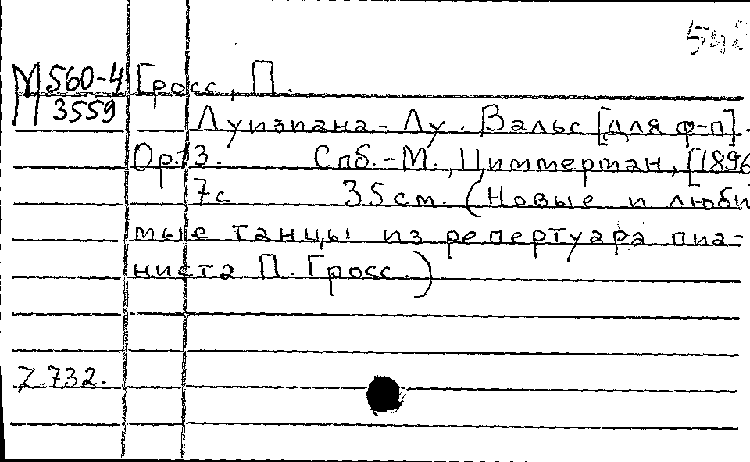 548
М 560-4 Гросс, П.
3559
Луизиана-Лу. Вальс [для ф-п].
Op. 13. Спб.-М., Циммерман, [1896
7с 35см. (Новые и люби
мые танцы из репертуара пиа-
ниста П. Гросс.)
Z 732.